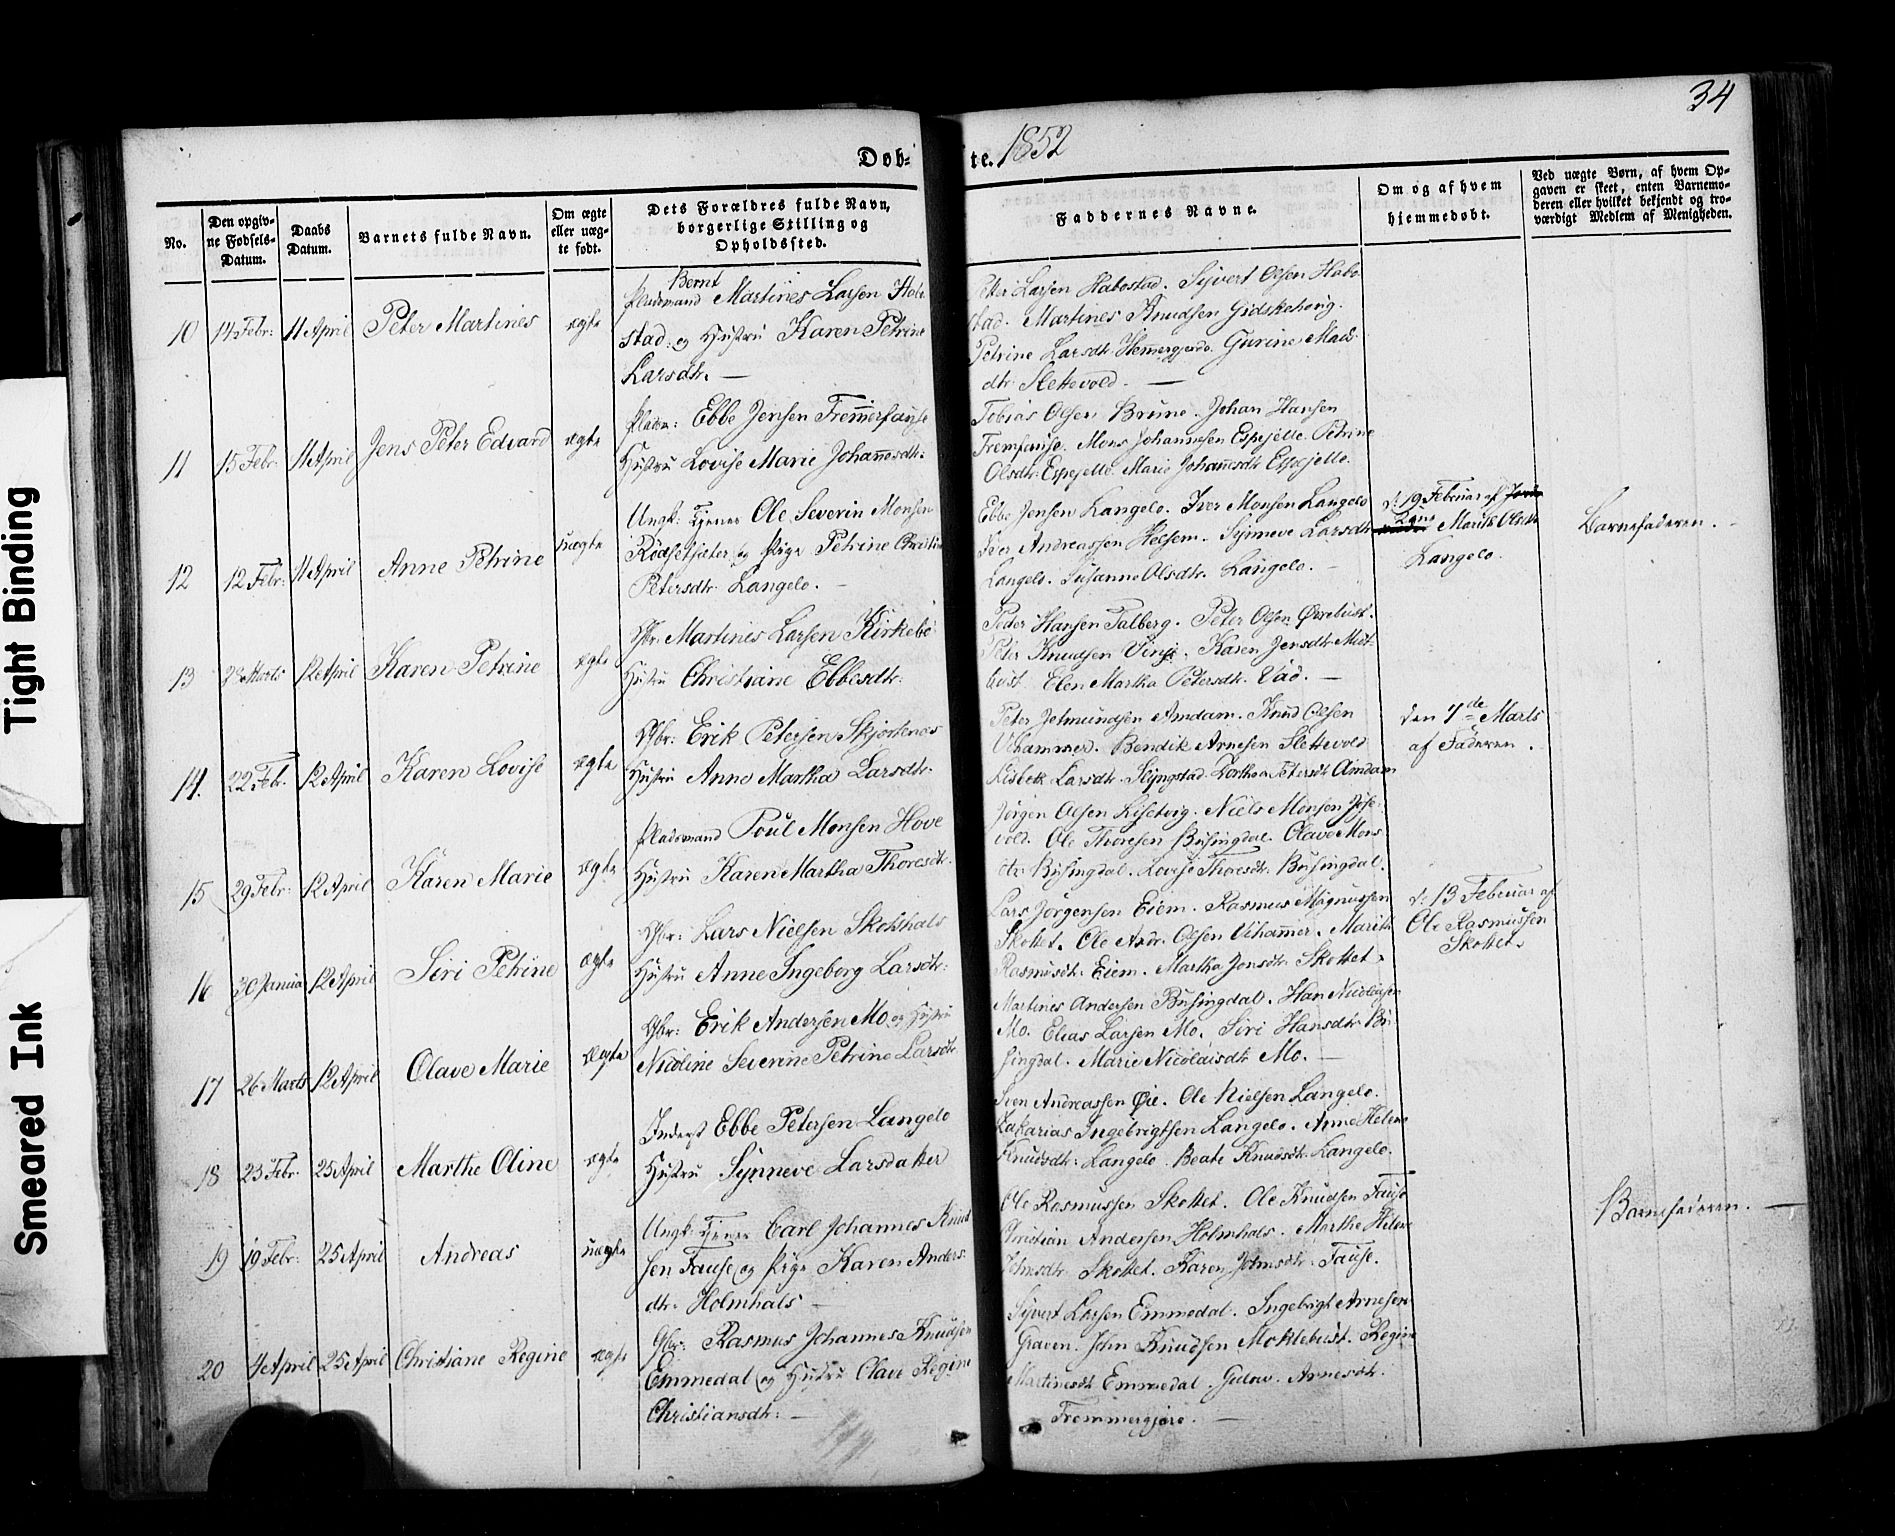 34
Døb- te. 1852
No.
Den opgiv-
ne Fødsels-
Datum.
Daabs
Datum.
Barnets fulde Navn.
Om ægte
eller uæg-
te født.
Dets Forældres fulde Navn,
borgerlige Stilling og
Opholdssted.
Faddernes Navne.
Om og af hvem
hjemmedøbt.
Ved uægte Børn, af hvem Op-
gaven er skeet, enten Barnemo-
deren eller hvilket bekjendt og tro-
værdigt Medlem af Menigheden.
10 14 Febr: 11 April Peter Martines ægte
Bernt
Pladsmand Martines Larsen Habo
stad: og Hustru Karen Petrine
Larsdtr. —
Peter Larsen Habostad. Syvert Olsen Habo
stad. Martines Knudsen Gidskehovig.
Petrine Larsdtr. Gurine Mads
dtr: Slettevold. —
11 15 Febr: 11 April Jens Peter Edvard ægte
Pladsm: Ebbe Jensen Fremerfause
Hustru Lovise Marie Johannesdtr:
Tobias Olsen Brune. Johan Hansen
Fremfause. Mons Johannesen Espejelle. Petrine
Olsdtr: Espejelle. Marie Johannesdtr Espejelle.
12 12 Febr: 11 April Anne Petrine uægte
Ungk: Tjener Ole Severin Monsen
Rødsetsæter og Pige Petrine Christine
Petersdtr Langelo. —
Ebbe Jensen Langelo. Iver Monsen Langelo
Iver Andreassen Helsem. Synneve Larsdtr
Langelo. Susanne Olsdtr. Langelo. —
d: 19 Februar af
Marith Olsdtr
Langelo.
Barnefaderen. -
13 28 Marts 12 April Karen Petrine ægte
Gbr. Martines Larsen Kirkebø
Hustru Christiane Ebbesdtr:
Peder Hansen Talberg. Peter Olsen Øvrebust.
Peter Knudsen Vinje. Karen Jensdtr. Midt-
bust. Elen Martha Petersdtr. Vad. —
14. 22 Feb. 12 April Karen Lovise ægte
Gbr: Erik Petersen Skjortenes
Hustru Anne Martha Larsdtr.
Peter Jetmundsen Amdam. Knud Olsen
Uthammer. Bendik Arnesen Slettevold
Lisbet Larsdtr. Slyngstad. Dorthea Petersdtr Amdam
den 7de Marts
af Faderen.
15 29 Febr: 12 April Karen Marie ægte
Pladsmand Poul Monsen Hove
Hustru Karen Martha Thoresdtr.
Jørgen Olsen Niels Monsen
vold. Ole Thoresen Busingdal. Olave Mons
dtr: Busingdal. Lovise Thoresdtr. Busingdal.
16 30 Januar 12 April Siri Petrine ægte
Gbr: Lars Nielsen Skotshals
Hustru Anne Ingeborg Larsdtr:
Lars Jørgensen Eiem. Rasmus Magnussen
Skottet. Ole Andr. Olsen Uthammer. Marith
Rasmusdtr. Eiem. Martha Jonsdtr. Skottet.
d: 13 Februar af
Ole Rasmussen
Skottet.
17 26 Marts 12 April Olave Marie ægte
Gbr: Erik Andersen Mo og Hustru
Nicoline Severine Petrine Larsdtr
Martines Andersen Busingdal. Han Nicolaisen
Mo. Elias Larsen Mo. Siri Hansdtr. Bu
singdal. Marie Nicolaisdtr Mo. —
18 23 Febr. 25 April Marthe Oline ægte
Inderst Ebbe Petersen Langelo
Hustru Synneve Larsdatter
Sven Andreassen Øie. Ole Nielsen Langelo.
Zakarias Ingebrigtsen Langelo. Anne Helene
Knudsdtr: Langelo. Beate Knudsdtr. Langelo.
19 19 Febr: 25 April Andreas uægte
Ungk. Tjener Carl Johannes Knud
sen Fause og Pige Karen Anders:
dtr: Holmhals —
Ole Rasmussen Skottet. Ole Knudsen Fause
Christian Andersen Holmhals. Marthe Helene
Johnsdtr Skottet. Karen Johnsdtr: Fause.
Barnefaderen. —
20 4 April 25 April Christiane Regine ægte
Gbr: Rasmus Johannes Knudsen
Emmedal og Hustru Olave Regine
Christiansdtr: —
Syvert Larsen Emmedal. Ingebrigt Arnesen
Graven. John Knudsen Moklebust. Regine
Martinesdtr Emmedal. Arnesdtr.
Fremmergjære. —
Tight Binding
Smeared Ink